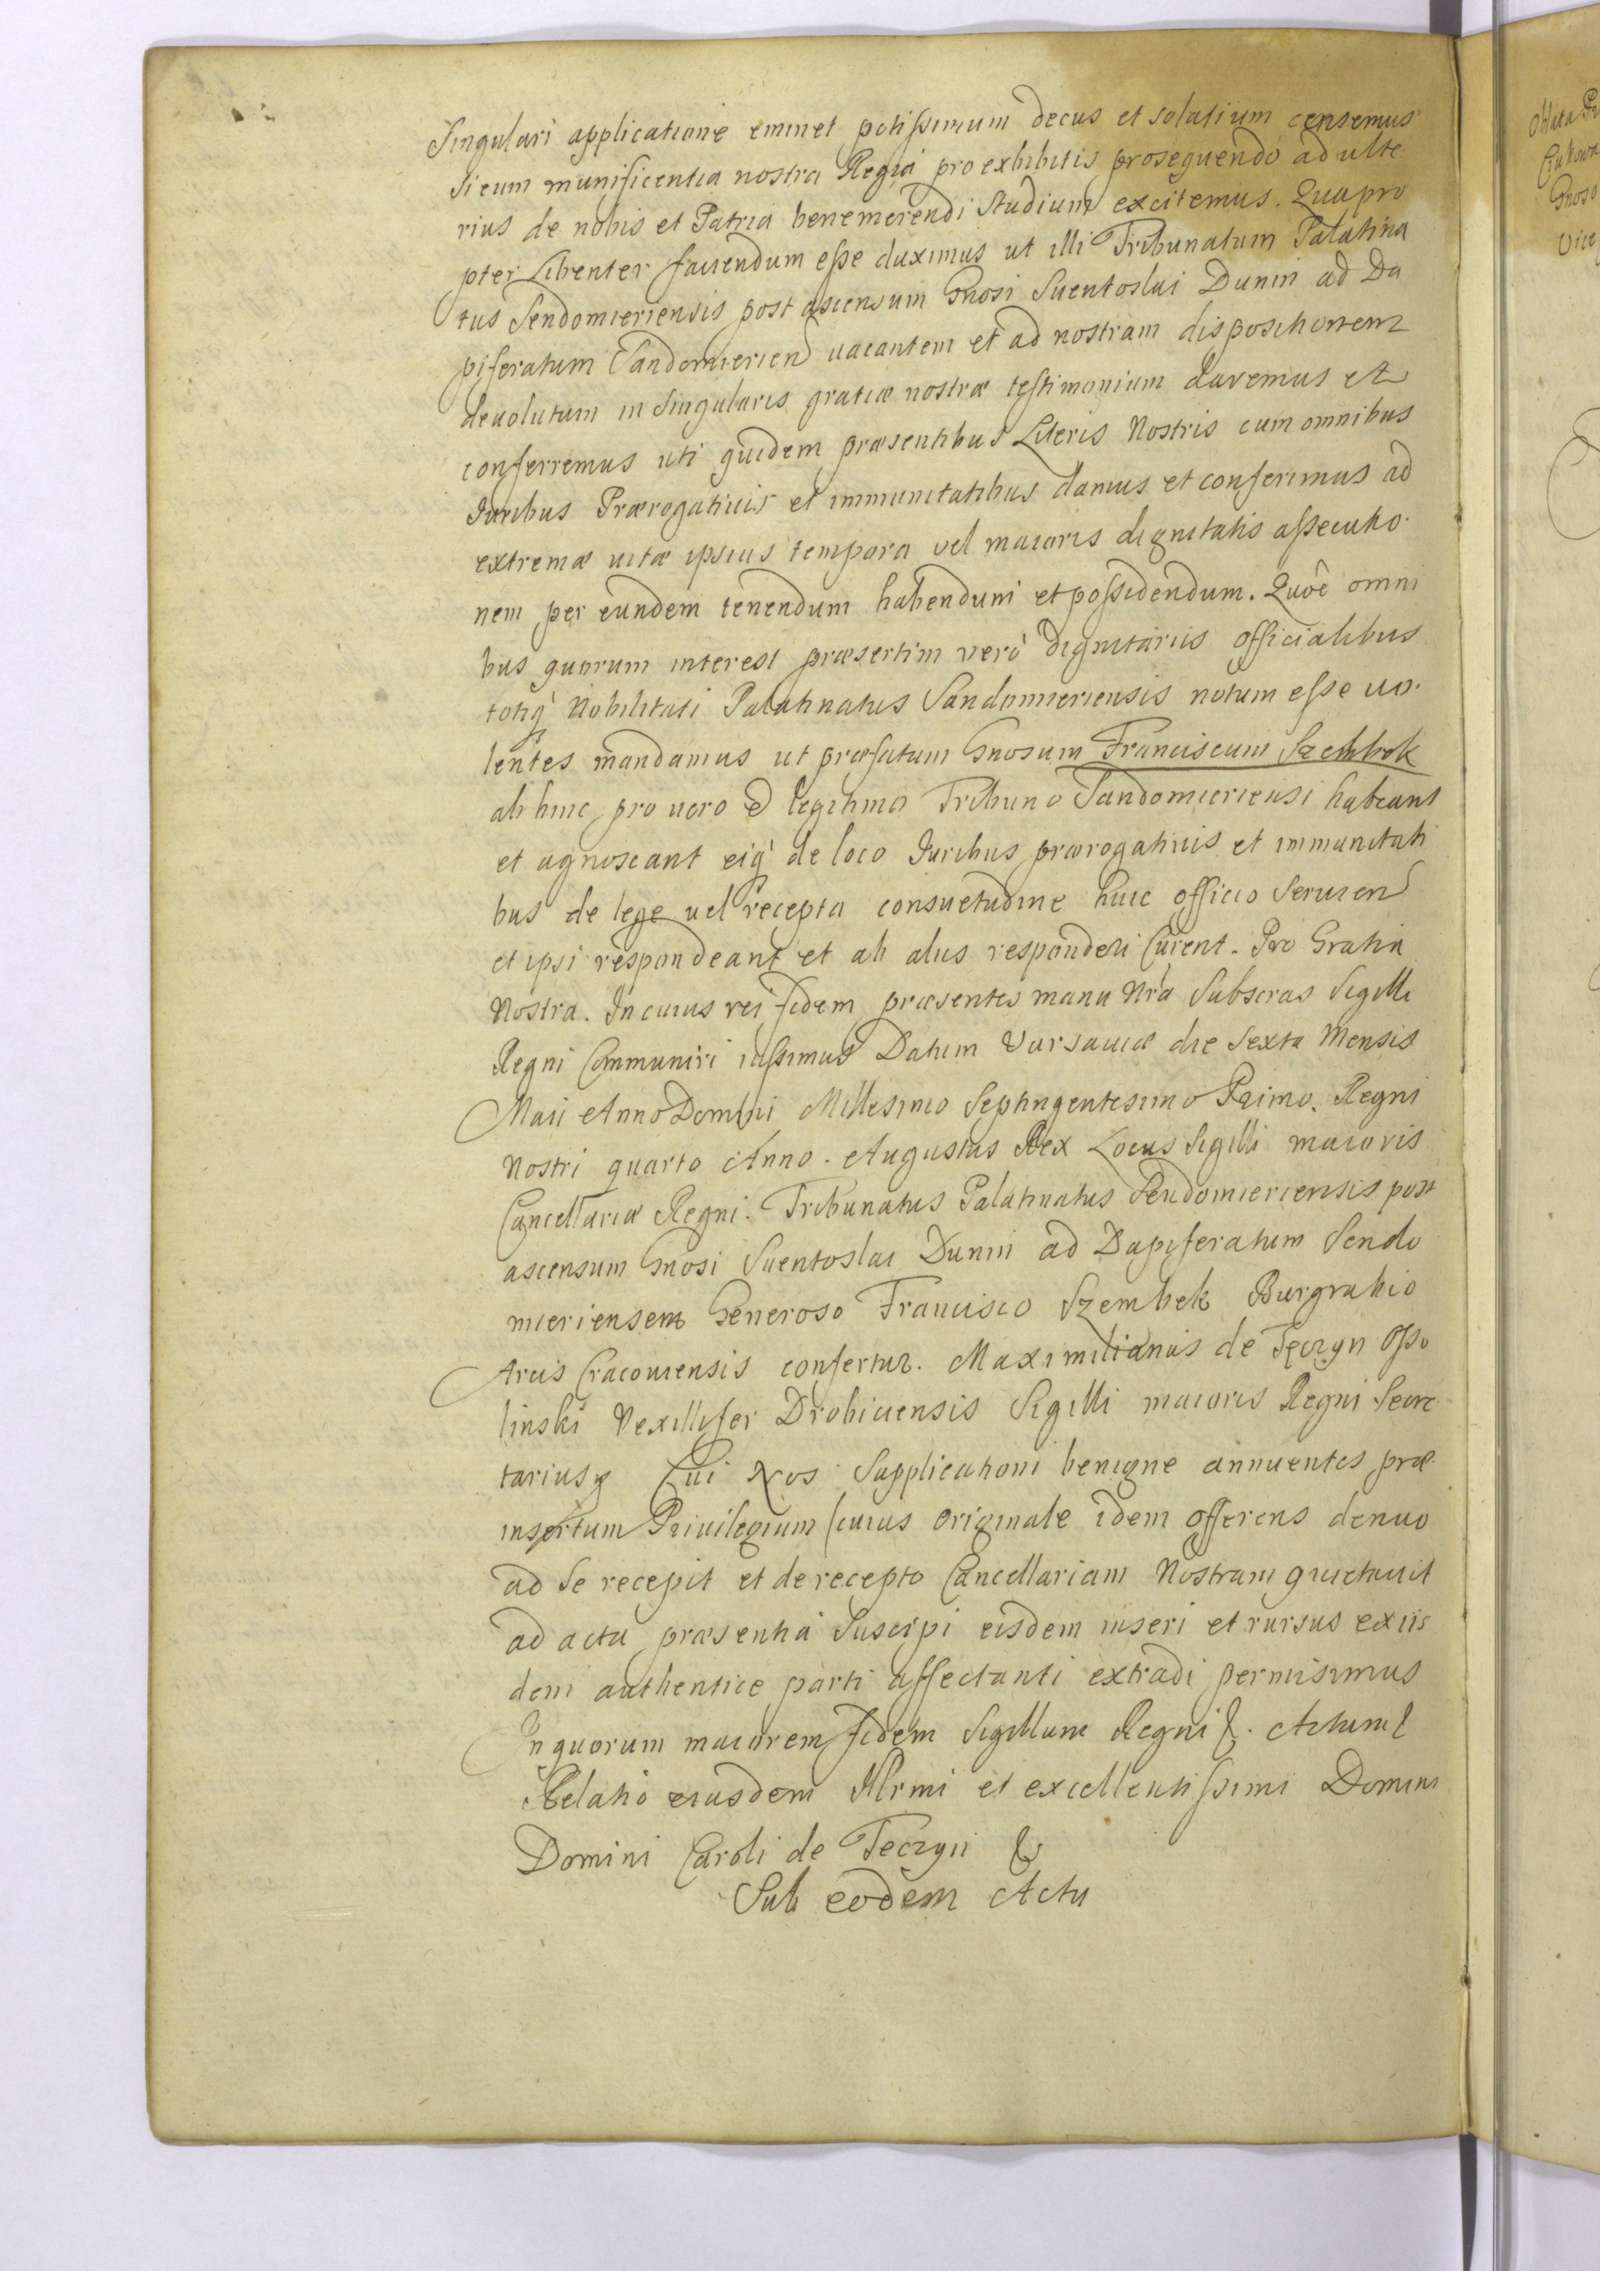 Singulari applicatione eminet potissimum decus et solatium censemus
si eum munificentia nostra Regia pro exhibitis prosequendo ad ulte
rius de nobis et Patria benemerendi studium excitemus. Quapro
pter Libenter faciendum esse duximus ut illi Tribunatum Palatina
tus Sendomieriensis post ascensum Gnosi Suentoslai Dunin ad Da
piferatum Sandomierien vacantem et ad nostram dispositionem
devolutum in singularis gratiæ nostræ testimonium daremus et
conferremus uti quidem præsentibus Literis Nostris cum omnibus
Iuribus Prærogativis et immunitatibus damus et conferimus ad
extremæ vitæ ipsius tempora vel maioris dignitatis assecutio
nem per eundem tenendum habendum et possidendum. Quôe omni
bus quorum interest præsertim verò dignitariis officialibus
totiq' Nobilitati Palatinatus Sandomieriensis notum esse vo
lentes mandamus ut præfatum Gnosum Franciscum Szembek
ab hinc pro vero & legitimo Tribuno Sandomieriensi habeant
et agnoscant eiq' de loco Iuribus prærogativis et immunitati
bus de lege vel recepta consuetudine huic officio servien
et ipsi respondeant et ab aliis responderi Curent. Pro Gratia
Nostra. In cuius rei fidem præsentes manu Nra Subscras Sigilli
Regni Communiri iussimus Datum Varsaviæ die sexta Mensis
Maii Anno Domini Millesimo Septingentesimo Primo. Regni
Nostri quarto Anno. Augustus Rex Locus Sigilli maioris
Cancellariæ Regni. Tribunatus Palatinatus Sendomieriensis post
ascensum Gnosi Suentoslai Dunin ad Dapiferatum Sendo
mieriensem Generoso Francisco Szembek Burgrabio
Arcis Cracoviensis confertur. Maximilianus de Tęczyn Osso
linski Vexillifer Drohiciensis Sigilli maioris Regni Secre
tarius Cui Nos Supplicationi benigne annuentes præ
insertum Privilegium (cuius originale idem offerens denuo
ad se recepit et de recepto Cancellariam Nostram quietavit
ad acta præsentia Suscipi eisdem inseri et rursus ex iis
dem authentice parti affectanti extradi permisimus
In quorum maiorem fidem Sigillum Regni &. Actum &
Relatio eiusdem Illrmi et excellentissimi Domini
Domini Caroli de Teczyn &
Sub eodem Actu